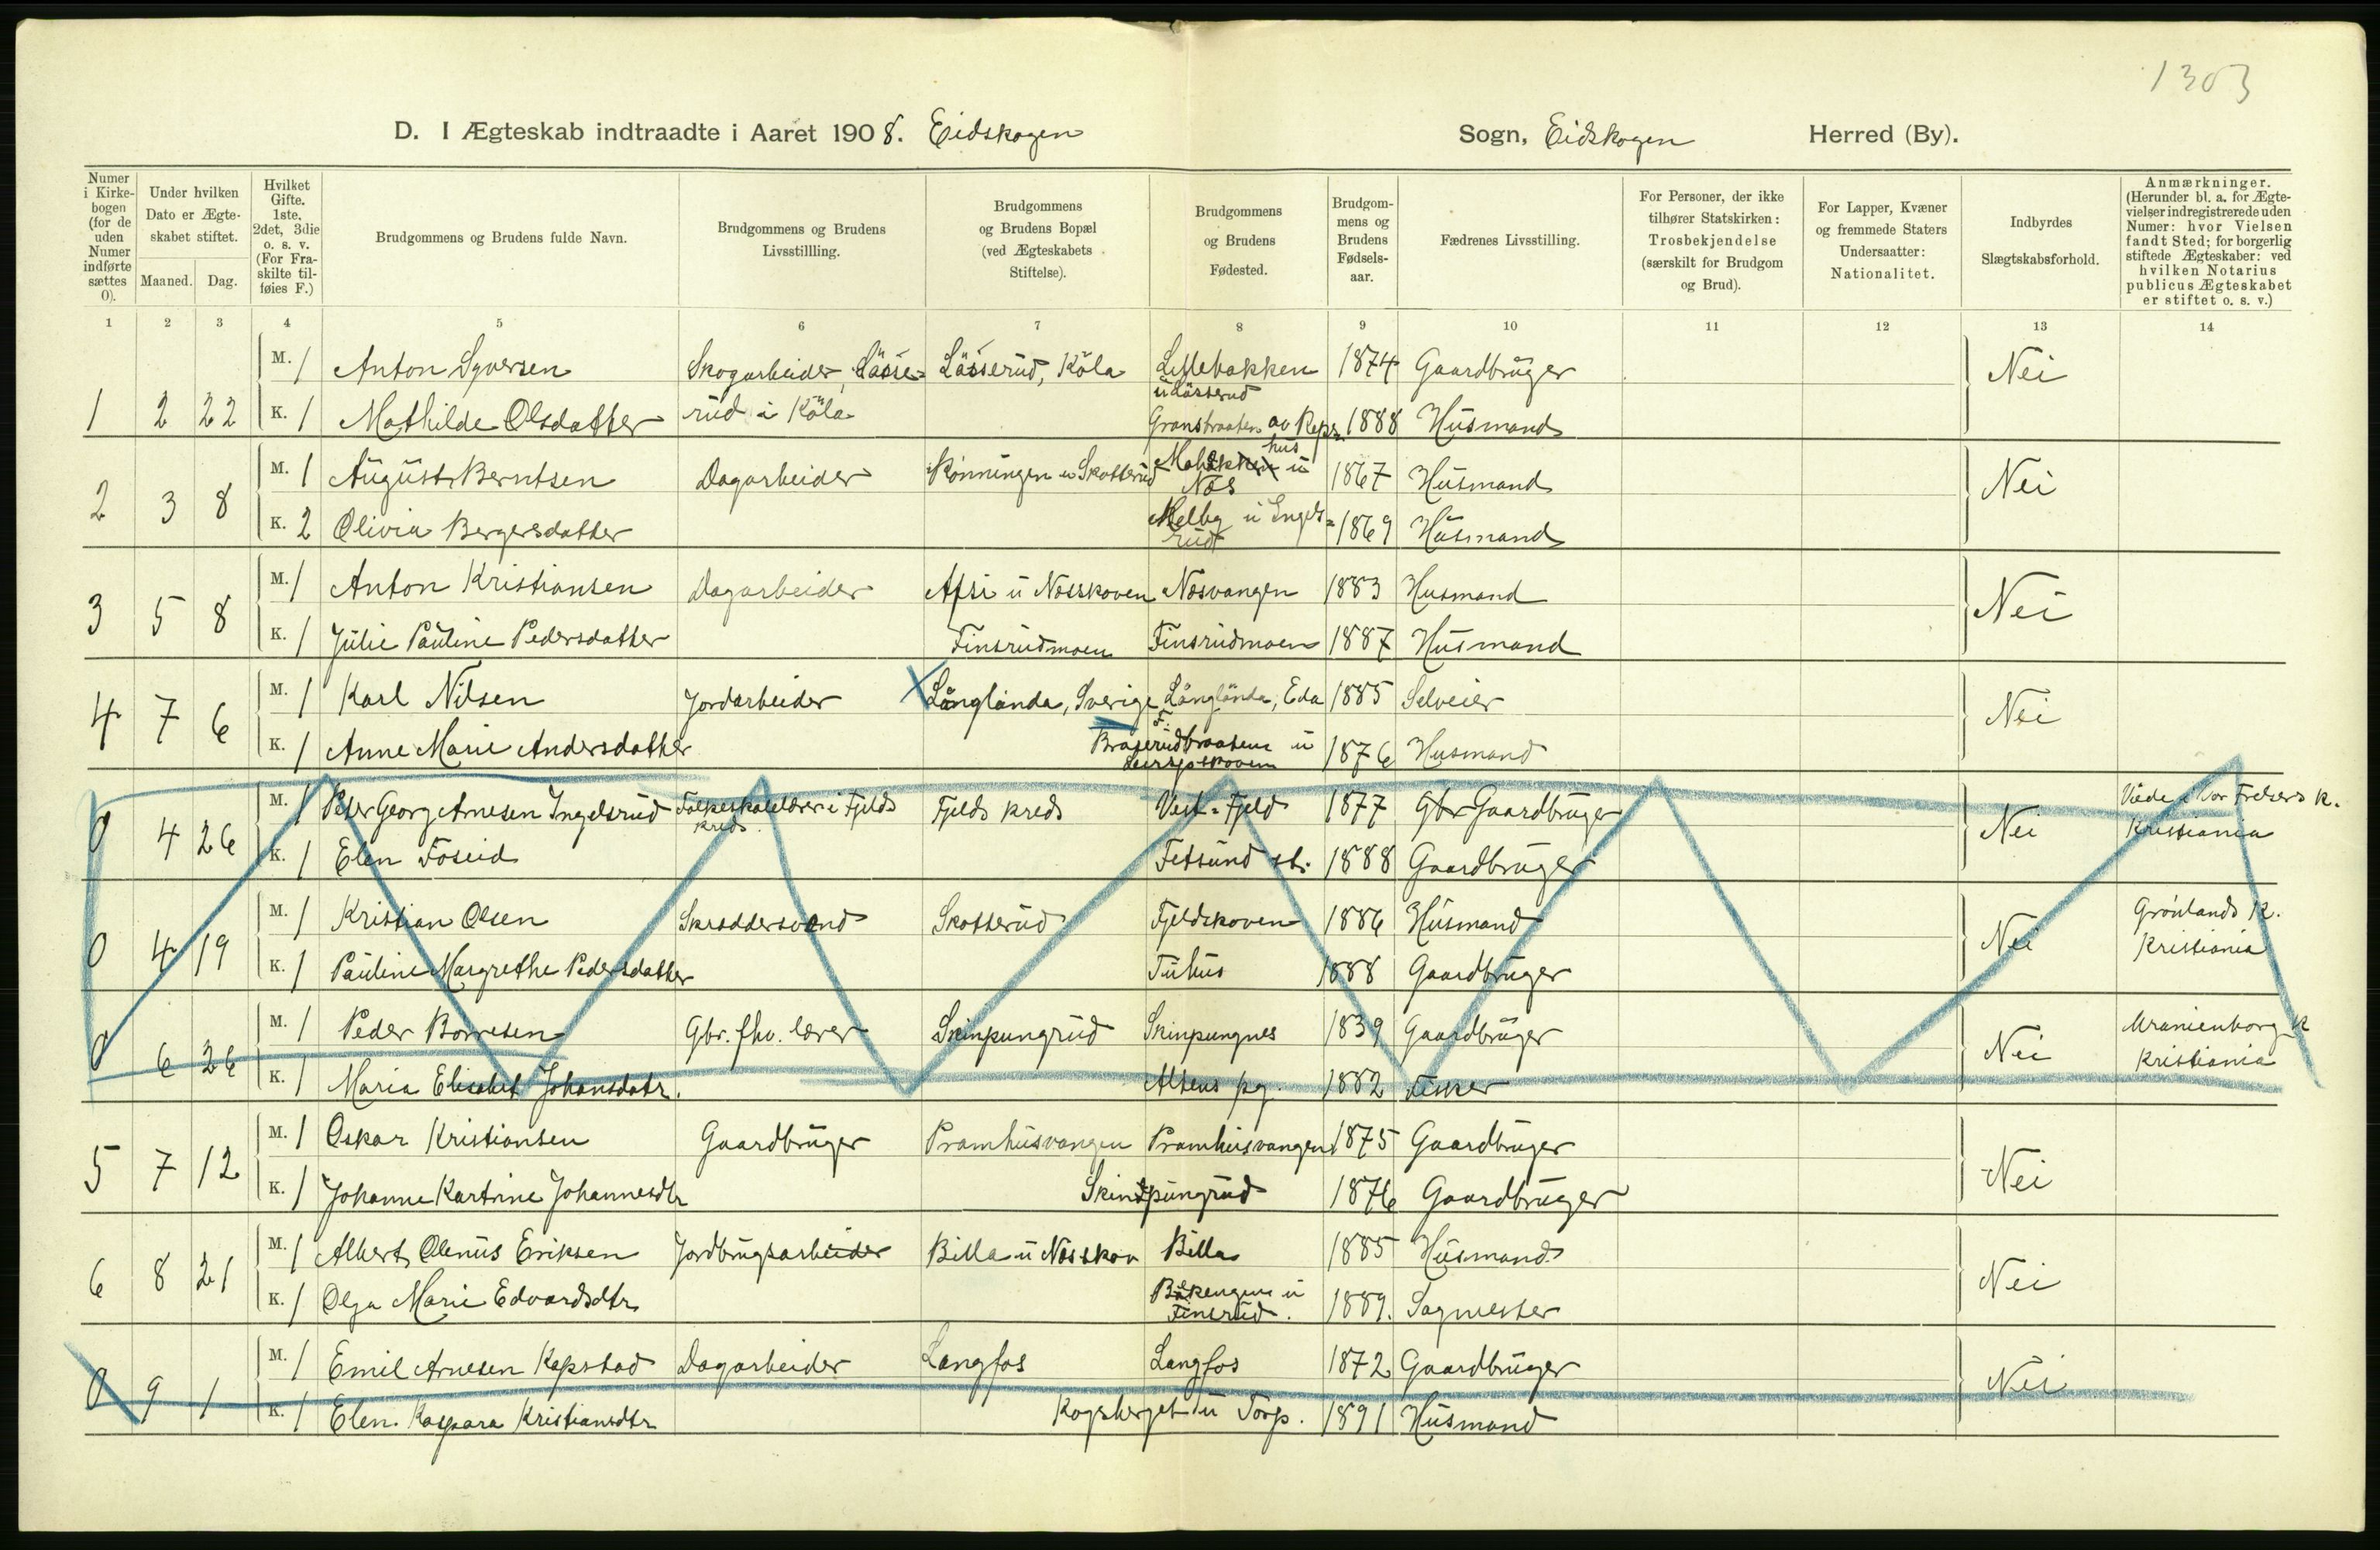 1303
D. I Ægteskab indtraadte i Aaret 1908. Eidskogen Sogn, Eidskogen Herred (By).
Numer i Kirkebogen (for de uden Numer indførte sættes 0).
Under hvilken Dato er Ægteskabet stiftet.
Maaned. Dag.
Hvilket Gifte. 1ste, 2det, 3die o. s. v. (For Fraskilte tilføies F.)
Brudgommens og Brudens fulde Navn.
Brudgommens og Brudens Livsstillling.
Brudgommens og Brudens Bopæl (ved Ægteskabets Stiftelse).
Brudgommens og Brudens Fødested.
Brudgommens og Brudens Fødselsaar.
Fædrenes Livsstilling.
For Personer, der ikke tilhører Statskirken: Trosbekjendelse (særskilt for Brudgom og Brud).
For Lapper, Kvæner og fremmede Staters Undersaatter: Nationalitet.
Indbyrdes Slægtskabsforhold.
Anmærkninger. (Herunder bl. a. for Ægtevielser indregistrerede uden Numer: hvor Vielsen fandt Sted; for borgerlig stiftede Ægteskaber: ved hvilken Notarius publicus Ægteskabet er stiftet o. s. v.)
1 2 3 4 5 6 7 8 9 10 11 12 13 14
M. 1 Anton Syversen Skogarbeider, Lässe= Lässerud, Köla Lillebakken 1874 Gaardbruger Nei
u Lässerud
1 2 22 K. 1 Mathilde Olsdatter rud i Köla Granstraaten av 1888 Husmand
M. 1 August Berntsen Dagarbeider Rønningen u Skotterud hus u Næs 1867 Husmand Nei
2 3 8 K. 2 Olivia Bergersdatter Melby u Engels=rud 1869 Husmand
M. 1 Anton Kristiansen Dagarbeider u Næsskoven Næsvangen 1883 Husmand Nei
3 5 8 K. 1 Julie Pauline Pedersdatter Finsrudmoen Finsrudmoen 1887 Husmand
M. 1 Karl Nilsen Jordarbeider Långlanda, Sverige Långlanda, Eda 1885 Selveier Nei
4 7 6 K. 1 Anne Marie Andersdatter F. Braserudbraaten u 1876 Husmand
M. 1 Peder Georg Arnesen Ingelsrud Folkeskolelærer i Fjelds kreds. Fjelds kreds Vest-Fjeld 1877 Gbr Gaardbruger Nei Viede i Vor Frelsers k. Kristiania
0 4 26 K. 1 Elen Foseid Fetsund st. 1888 Gaardbruger
M. 1 Kristian Olsen Skræddersvend Skotterud Fjeldskoven 1886 Husmand Nei Grønlands K. Kristiania
0 4 19 K. 1 Pauline Margrethe Pedersdatter Tuhus 1888 Gaardbruger
M. 1 Peder Borresen Gbr. fhv. lærer Skinpungrud Skinpungnes 1839 Gaardbruger Nei Uranienborg K Kristiania
0 6 26 K. 1 Maria Elisabet Johansdatr. Altens pg. 1882 Fisker
M. 1 Oskar Kristiansen Gaardbruger Pramhusvangen Pramhusvangen 1875 Gaardbruger Nei
5 7 12 K. 1 Johanne Kartrine Johannesdtr Skindpungrud 1876 Gaardbruger
M. 1 Albert Olenius Eriksen Jordbrugsarbeider Billa u Næsskov Billa 1885 Husmand Nei
6 8 21 K. 1 Olga Marie Edvardsdtr u Finsrud. 1889. Sagmester
M. 1 Emil Arnesen Kapstad Dagarbeider Langfos Langfos 1872 Gaardbruger Nei
0 9 1 K. 1 Elen Kaspara Kristiansdtr u Torp. 1891 Husmand